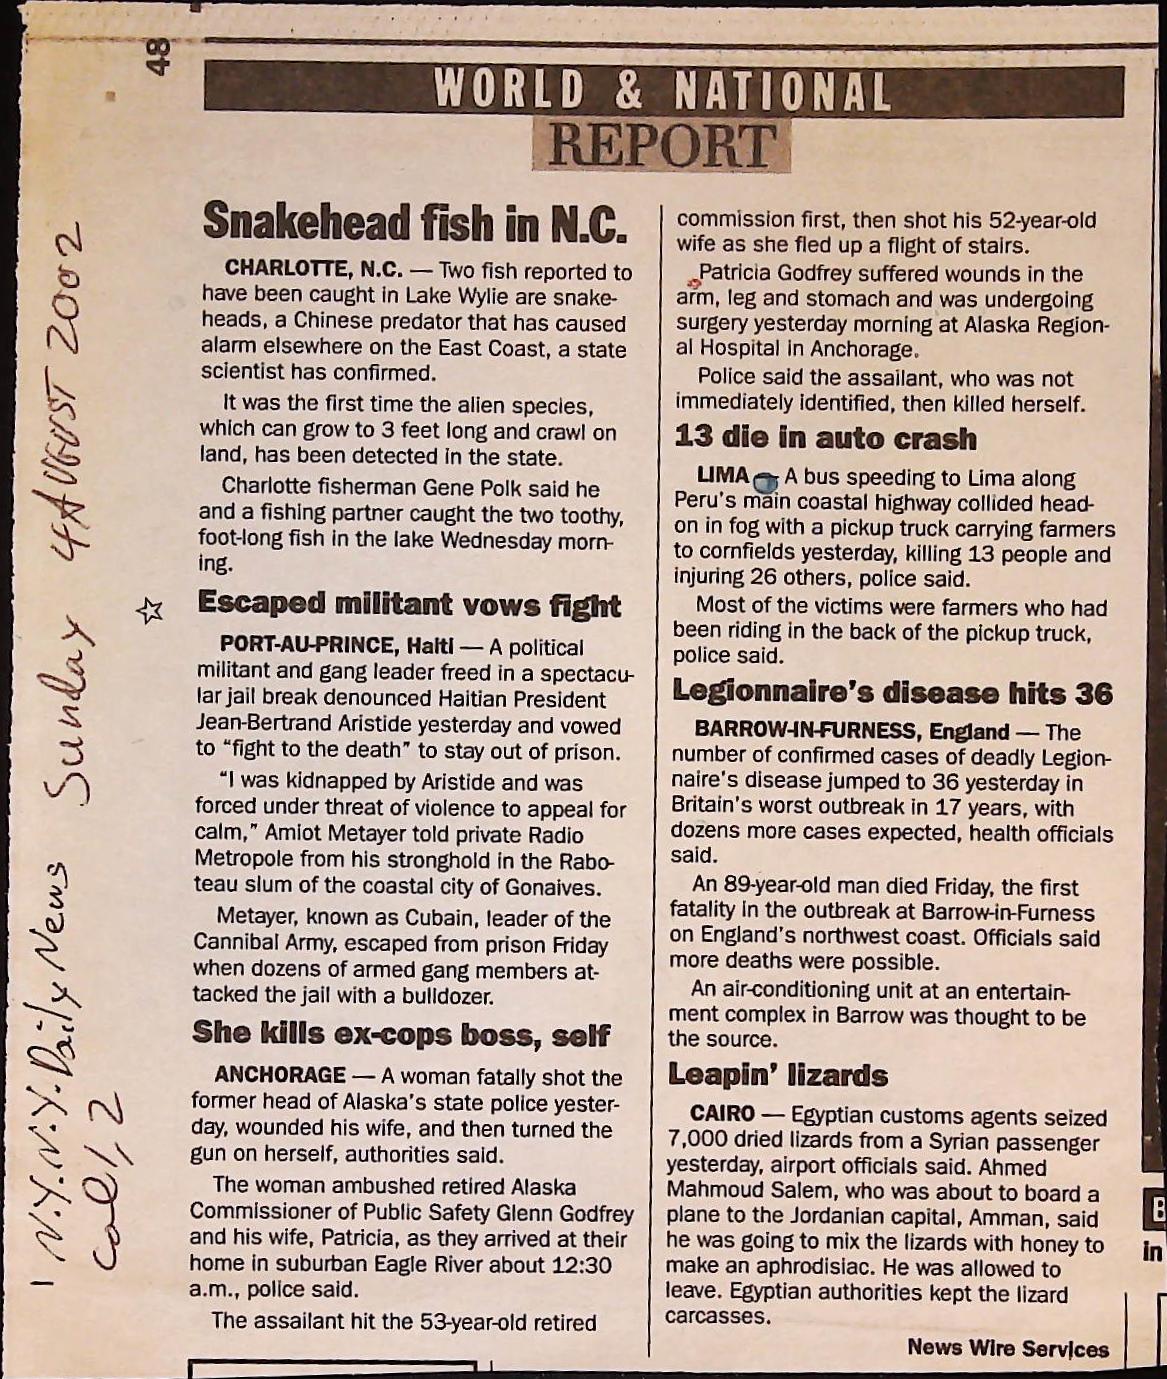 48
WORLD & NATIONAL
REPORT
Snakehead fish in N.C.
CHARLOTTE, N.C. — Two fish reported to
have been caught in Lake Wylie are snake-
heads, a Chinese predator that has caused
alarm elsewhere on the East Coast, a state
scientist has confirmed.
It was the first time the alien species,
which can grow to 3 feet long and crawl on
land, has been detected in the state.
Charlotte fisherman Gene Polk said he
and a fishing partner caught the two toothy,
foot-long fish in the lake Wednesday morn-
ing.
☆ Escaped militant vows fight
PORT-AU-PRINCE, Haiti — A political
militant and gang leader freed in a spectacu-
lar jail break denounced Haitian President
Jean-Bertrand Aristide yesterday and vowed
to “fight to the death” to stay out of prison.
“I was kidnapped by Aristide and was
forced under threat of violence to appeal for
calm,” Amiot Metayer told private Radio
Metropole from his stronghold in the Rabo-
teau slum of the coastal city of Gonaives.
Metayer, known as Cubain, leader of the
Cannibal Army, escaped from prison Friday
when dozens of armed gang members at-
tacked the jail with a bulldozer.
She kills ex-cops boss, self
ANCHORAGE — A woman fatally shot the
former head of Alaska's state police yester-
day, wounded his wife, and then turned the
gun on herself, authorities said.
The woman ambushed retired Alaska
Commissioner of Public Safety Glenn Godfrey
and his wife, Patricia, as they arrived at their
home in suburban Eagle River about 12:30
a.m., police said.
The assailant hit the 53-year-old retired
commission first, then shot his 52-year-old
wife as she fled up a flight of stairs.
Patricia Godfrey suffered wounds in the
arm, leg and stomach and was undergoing
surgery yesterday morning at Alaska Region-
al Hospital in Anchorage.
Police said the assailant, who was not
immediately identified, then killed herself.
13 die in auto crash
LIMA — A bus speeding to Lima along
Peru's main coastal highway collided head-
on in fog with a pickup truck carrying farmers
to cornfields yesterday, killing 13 people and
injuring 26 others, police said.
Most of the victims were farmers who had
been riding in the back of the pickup truck,
police said.
Legionnaire's disease hits 36
BARROW-IN-FURNESS, England — The
number of confirmed cases of deadly Legion-
naire's disease jumped to 36 yesterday in
Britain's worst outbreak in 17 years, with
dozens more cases expected, health officials
said.
An 89-year-old man died Friday, the first
fatality in the outbreak at Barrow-in-Furness
on England's northwest coast. Officials said
more deaths were possible.
An air-conditioning unit at an entertain-
ment complex in Barrow was thought to be
the source.
Leapin' lizards
CAIRO — Egyptian customs agents seized
7,000 dried lizards from a Syrian passenger
yesterday, airport officials said. Ahmed
Mahmoud Salem, who was about to board a
plane to the Jordanian capital, Amman, said
he was going to mix the lizards with honey to
make an aphrodisiac. He was allowed to
leave. Egyptian authorities kept the lizard
carcasses.
News Wire Services
N.Y.N.Y. Daily News Sunday 4 AUGUST 2002
Col 1, 2
B
in